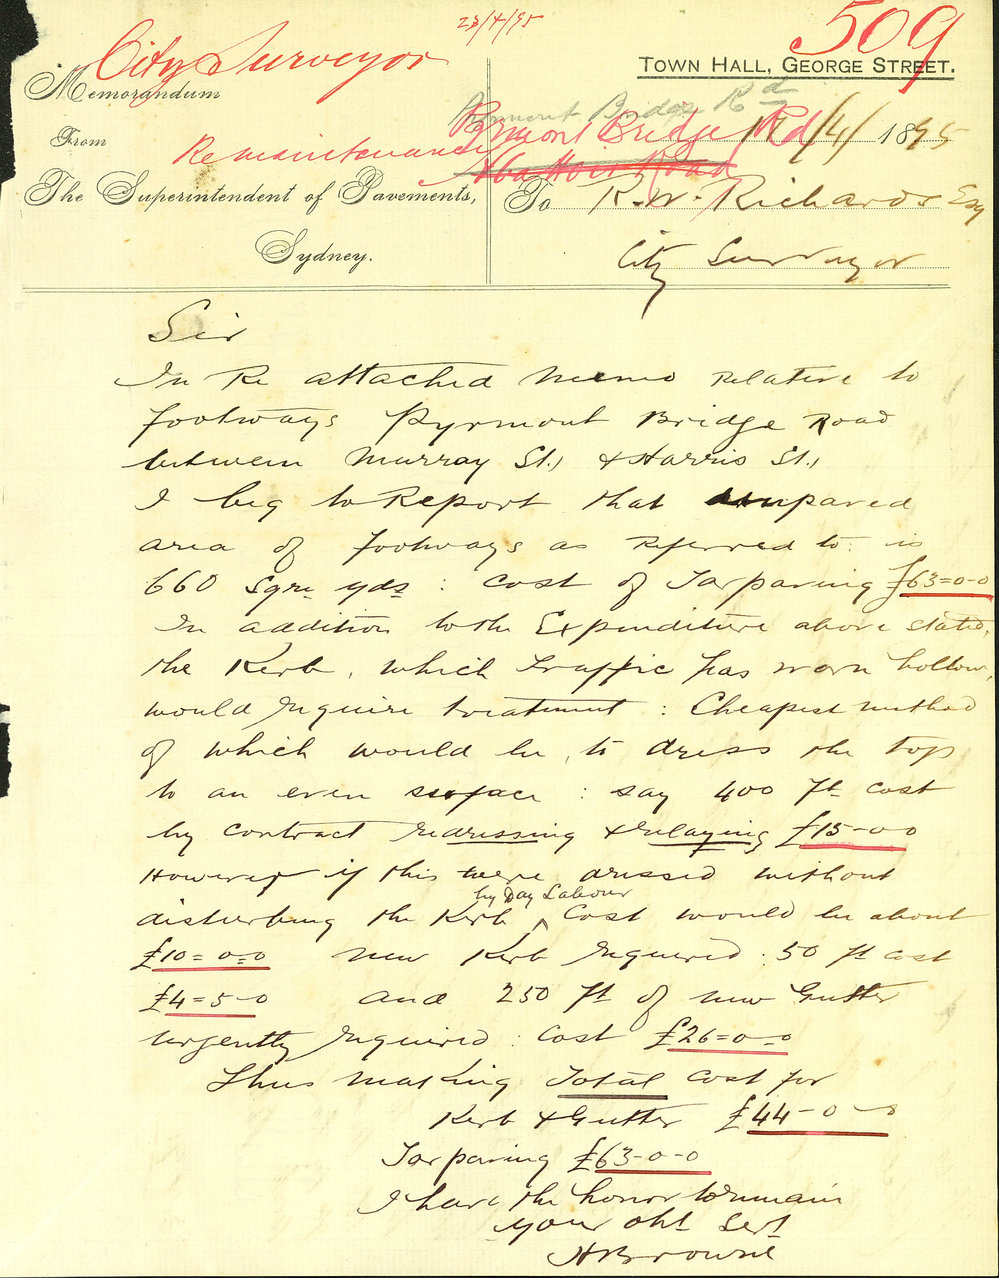 23/4/95
509
City Surveyor
TOWN HALL, GEORGE STREET.
Memorandum
Pyrmont Bridge Rd
Pyrmont Bridge Rd
17/4/1895
From
Re maintenance
Road
The Superintendent of Pavements,
To R. W. Richards Esq
Sydney.
City Surveyor
Sir
In Re attached memo relative to
footways Pyrmont Bridge Road
between Murray St., & Harris St.,
I beg to Report that unpaved
area of footways as referred to: is
660 Sqre yds: cost of Tarpaving £63=0-0
In addition to the Expenditure above stated,
the Kerb, which traffic has worn hollow,
would require treatment: Cheapest method
of which would be, to dress the top
to an even surface: say 400 ft cost
by contract redressing & relaying £15-0-0
However if this were dressed without
by Day Labour
disturbing the Kerb ^ Cost would be about
£10=0=0 new Kerb required. 50 ft cost
£4=5-0 and 250 ft of new Gutter
urgently required: cost £26=0=0
Thus making Total cost for
Kerb & Gutter £44-0-0
Tarpaving £63-0-0
I have the honor to remain
your obt Sert
H Browne